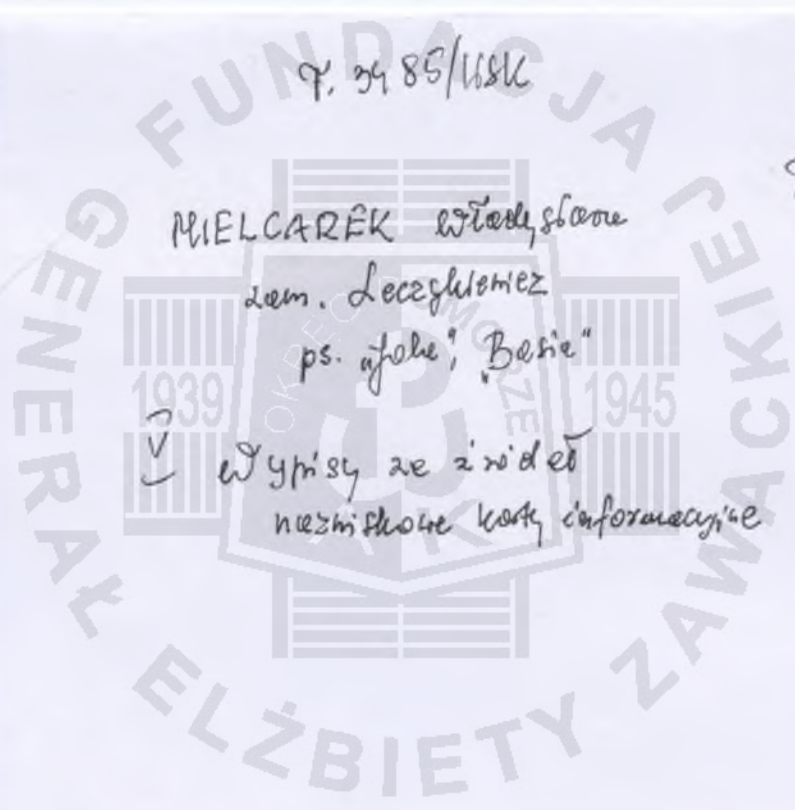 T. 3485/WSK
MIELCAREK Władysława
zam. Leczykiewicz
ps. „Jola”, „Basia”
V Wypisy ze źródeł
nazwiskowe karty informacyjne
FUNDACJA
GENERAŁ ELŻBIETY ZAWACKIEJ
1939 1945
OKRĘG POMORZE
AK